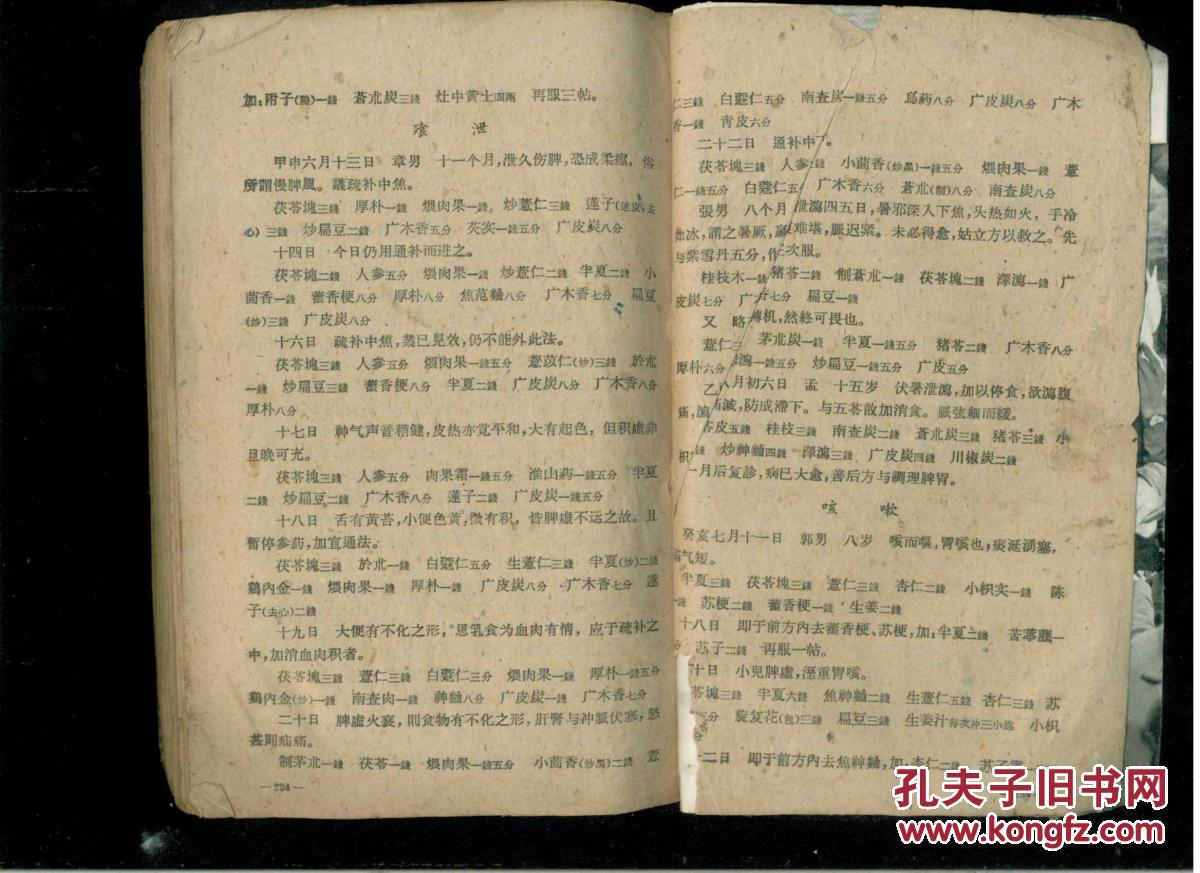 加：附子(熟)一錢　蒼朮炭三錢　灶中黃土四兩　再服三帖。
飧　泄
甲申六月十三日　章男　十一个月，泄久伤脾，恐成柔痙，俗
所謂慢脾風。議疏补中焦。
茯苓塊三錢　厚朴一錢　煨肉果一錢　炒薏仁三錢　蓮子(連皮去
心)三錢　炒扁豆二錢　广木香五分　芡实一錢五分　广皮炭八分
十四日　今日仍用通补而进之。
茯苓塊二錢　人参五分　煨肉果一錢　炒薏仁二錢　半夏二錢　小
茴香一錢　藿香梗八分　厚朴八分　焦范麯八分　广木香七分　扁豆
(炒)三錢　广皮炭八分
十六日　疏补中焦，業已見效，仍不能外此法。
茯苓塊三錢　人参五分　煨肉果一錢五分　薏苡仁(炒)三錢　於朮
一錢　炒扁豆三錢　藿香梗八分　半夏二錢　广皮炭八分　广木香八分
厚朴八分
十七日　神气声音稍健，皮热亦覚平和，大有起色，但积虛非
旦晚可充。
茯苓塊三錢　人参五分　肉果霜一錢五分　淮山葯一錢五分　半夏
二錢　炒扁豆二錢　广木香八分　蓮子二錢　广皮炭一錢五分
十八日　舌有黃苔，小便色黃，微有积，皆脾虛不运之故。且
暫停参葯，加宣通法。
茯苓塊三錢　於朮一錢　白蔻仁五分　生薏仁三錢　半夏(炒)二錢
鷄內金一錢　煨肉果一錢　厚朴一錢　广皮炭八分　广木香七分　蓮
子(去心)二錢
十九日　大便有不化之形，思乳食为血肉有情，应于疏补之
中，加消血肉积者。
茯苓塊三錢　薏仁三錢　白蔻仁三分　煨肉果一錢　厚朴一錢五分
鷄內金(炒)一錢　南查肉一錢　神麯八分　广皮炭一錢　广木香七分
二十日　脾虛火衰，則食物有不化之形，肝腎与冲脈伏寒，怒
甚則疝痛。
制茅朮一錢　茯苓一錢　煨肉果一錢五分　小茴香(炒黑)二錢　薏
—234—
仁三錢　白蔻仁五分　南查炭一錢五分　烏葯八分　广皮炭八分　广木
香一錢　靑皮六分
二十二日　通补中下。
茯苓塊三錢　人参二錢　小茴香(炒黑)一錢五分　煨肉果一錢　薏
仁一錢五分　白蔻仁五分　广木香六分　蒼朮(制)八分　南查炭八分
張男　八个月　泄瀉四五日，暑邪深入下焦，头热如火，手冷
如冰，謂之暑厥，难堪，脈迟紧。未必得愈，姑立方以救之。先
与紫雪丹五分，作三次服。
桂枝木一錢　猪苓二錢　制蒼朮一錢　茯苓塊二錢　澤瀉一錢　广
皮炭七分　广　香七分　扁豆一錢
又　略　轉机，然終可畏也。
薏仁三　茅朮炭一錢　半夏一錢五分　猪苓二錢　广木香八分
厚朴六分　瀉一錢五分　炒扁豆一錢五分　广皮五分
乙　八月初六日　孟　十五岁　伏暑泄瀉，加以停食，欲瀉腹
痛，瀉　痛減，防成滯下。与五苓散加消食。脈弦細而緩。
苓皮五錢　桂枝三錢　南查炭二錢　蒼朮炭三錢　猪苓三錢　小
枳　炒神麯四錢　澤瀉三錢　广皮炭四錢　川椒炭二錢
一月后复診，病已大愈，善后方与調理脾胃。
咳　嗽
癸亥七月十一日　郭男　八岁　咳而嘔，胃咳也；痰涎湧塞，
气短。
半夏三錢　茯苓塊三錢　薏仁三錢　杏仁二錢　小枳实一錢　陈
苏梗二錢　藿香梗一錢　生姜二錢
十八日　即于前方內去藿香梗、苏梗，加：半夏二錢　苦葶藶一
苏子二錢　再服一帖。
十日　小兒脾虛，溼重胃咳。
苓塊三錢　半夏六錢　焦神麯二錢　生薏仁五錢　杏仁三錢　苏
分　旋复花(包)三錢　扁豆三錢　生姜汁每次冲三小匙　小枳
二日　即于前方內去焦神麯，加：杏仁二錢　苏子
孔夫子旧书网
www.kongfz.com